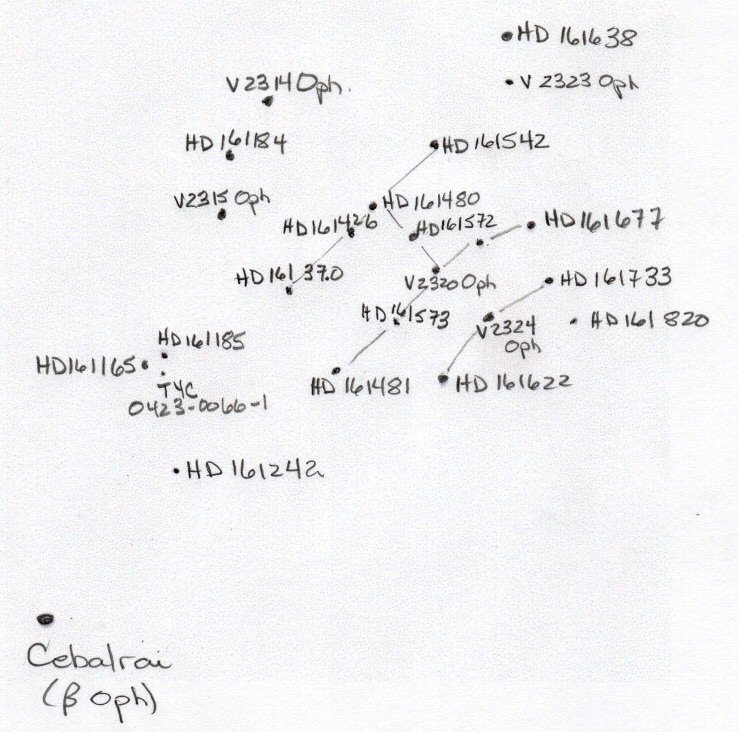 HD 161638
V 2323 Oph
V 2314 Oph.
HD 161184
HD 161542
V2315 Oph
HD 161480
HD 161426
HD 161572
HD 161677
HD 161370
V2320 Oph
HD 161733
HD 161573
V2324
Oph
HD 161820
HD 161185
HD161165
TYC
0423-0066-1
HD 161481
HD 161622
HD 161242
Cebalrai
(β Oph)